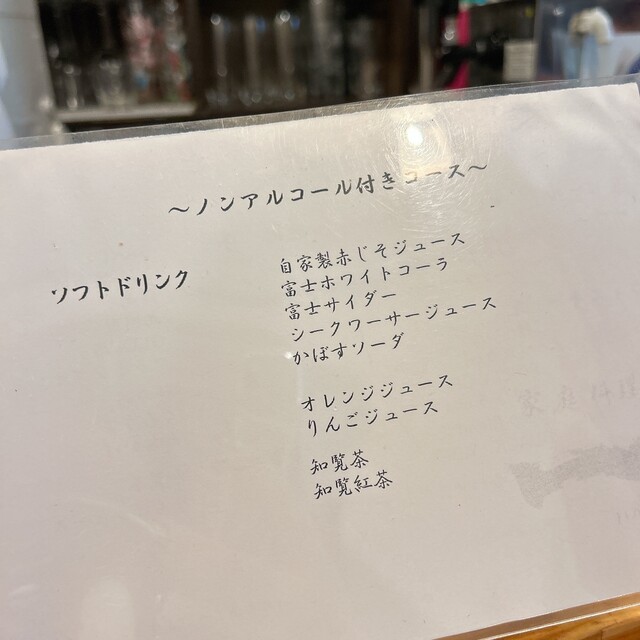 ～ノンアルコール付きコース～
ソフトドリンク
自家製赤じそジュース
富士ホワイトコーラ
富士サイダー
シークワーサージュース
かぼすソーダ
オレンジジュース
りんごジュース
知覧茶
知覧紅茶